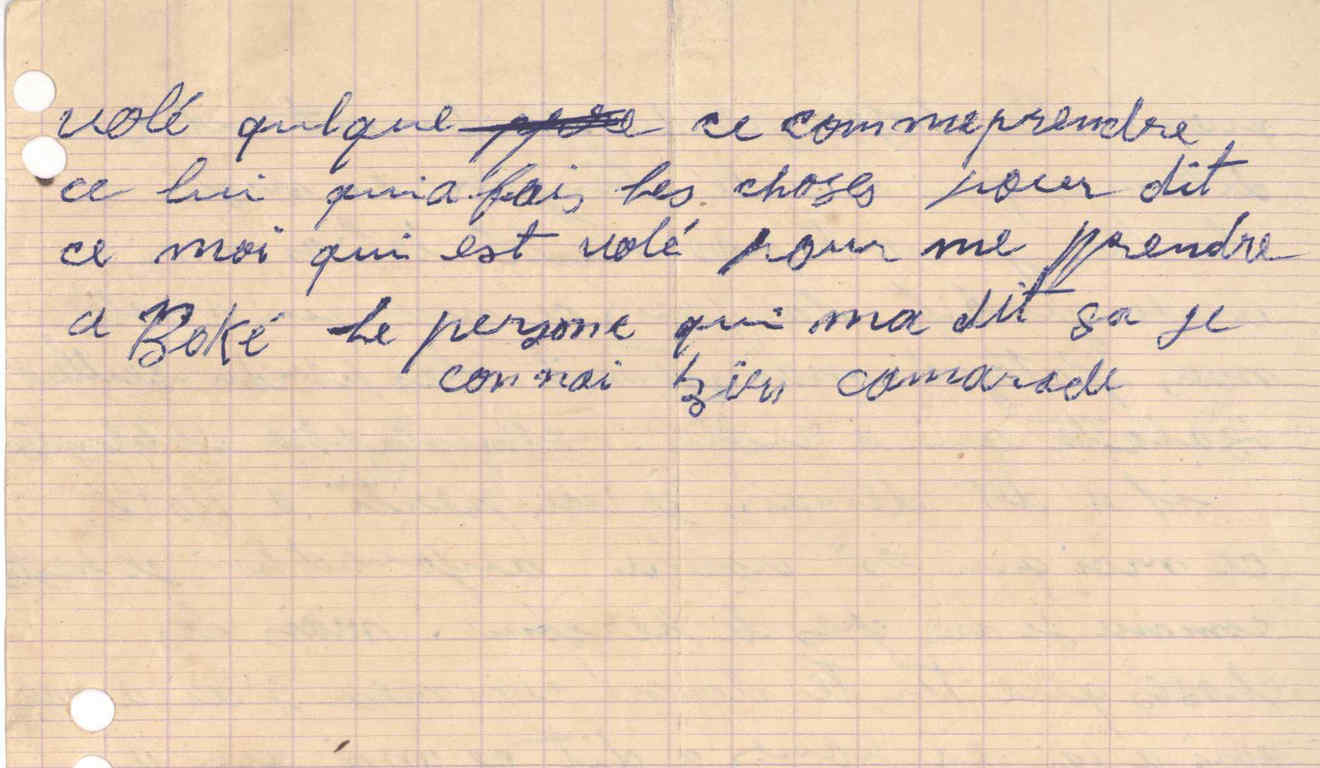 volé qulque ce commeprendre
ce lui qui a fais les choses pour dit
ce moi qui est volé pour me prendre
a Boké Le persone qui ma dit sa je
connai bien camarade